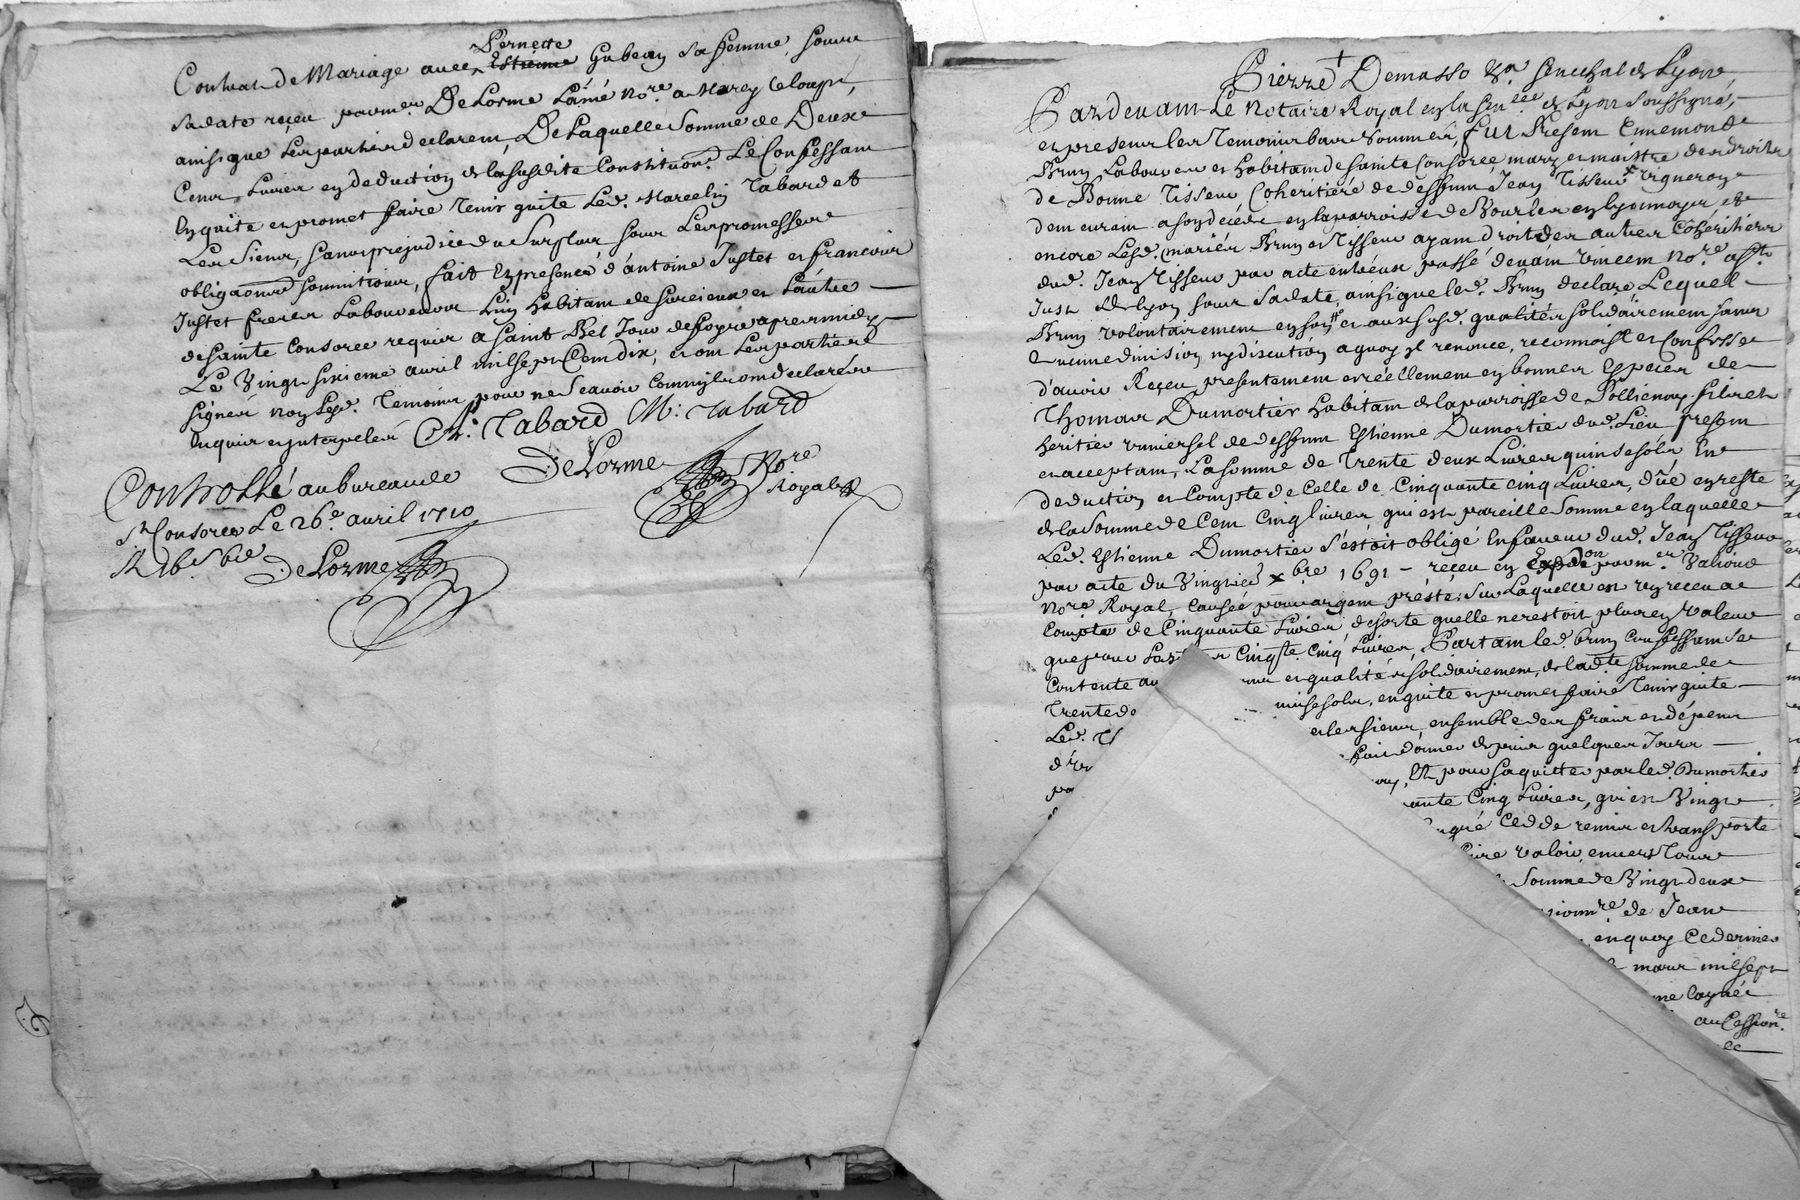 Pernette
Contrat de Mariage avec Estienne Gubean sa femme, soubz
sa date receu par me. DeLorme L'aîné No.re a Marcy Leloup,
ainsi que les parties declarent, De Laquelle Somme de Deux
Cens Livres en deduction de la susdite Constituon. Le Confessant
En quite et promet faire tenir quite Led. Marcelin Tabard et
Les Siens, sans prejudice du Surplus soubz Les promesses
obligaons. soumitions, fait En presence d'antoine Justet et francois
Justet freres Laboureurs L'un habitant de Sourcieux et L'autre
de sainte Consorce requis a Saint Bel Jour de foyre apres midy
Le Vingt sixieme avril mil sept Cens dix, et ont Les parties
signez non Les d. temoins pour ne Scavoir Comm'ils ont declarés
Enquis et Interpelez A. Tabard M: Tabard
DeLorme No.re Royal
Controllé au bureau de
S.te Consorce Le 26e. avril 1710
R 16 s bi.d
DeLorme
Pierre Demasso Sen. Senechal de Lyon,
Pardevant Le Notaire Royal en la Sen.cée de Lyon soussigné,
et presens les Temoins bas nommés, fut Present Ennemond
Brun Laboureur et habitant de sainte Consorce mary et maistre des droits
de Bonne Tisseur Coheritiere de deffunt Jean Tisseur vigneron
demeurant a son décéds en la parroisse de Bourles en lyonnoys et
encore Lesd. mariés Brun et Tisseur ayant droit des autres Cohéritiers
dud. Jean Tisseur par acte entr'eux passé devant Vincent No.re a St.
Just Les Lyon soubz sa date, ainsi que led. Brun declare Lequel
Brun volontairement en son et aux susd. qualités solidairement sans
aucune division ny discution a quoy il renonce, reconnoist et Confesse
d'avoir Receu presentement et réellement en bonnes Especes de
Thomas Dumortier habitant de la parroisse de Pollienay fils et
heritier universel de deffunt Estienne Dumortier dud. Lieu present
et acceptant, La Somme de Trente deux Livres quinse sols En
deduction et Compte de Celle de Cinquante cinq Livres, dûe en reste
de la Somme de Cent Cinq livres qui est pareille Somme en laquelle
Led. Estienne Dumortier S'estoit obligé En faveur dud. Jean Tisseur
par acte du Vingtie xbre 1691 - receu en Expedon par me. Valioud
No.re Royal, Causée pour argent presté, Sur Laquelle est reçu receu a
Compte de Cinquante Livres, de sorte quelle ne restoit plus en valeur
que pour Les Cinqte. Cinq Livres, Partant led. brun Confessant Se
Contente au et qualités solidairement, de lad.te Somme de
Trente d uinse sols, en quite et promet faire Tenir quite
Led. Th et les siens, ensemble des frais et dépens
d' fait donner depuis quelques Jours
pa Et pour Laquitter par led. Dumortier
ante Cinq Livres, qui est Vingt
Cedde remis et transporte
aire valoir envers tous
Somme de Vingt deux
sionn.re de Jean
en quoy Ced dernier
mars mil sept
ne Cayer
au Cession.re